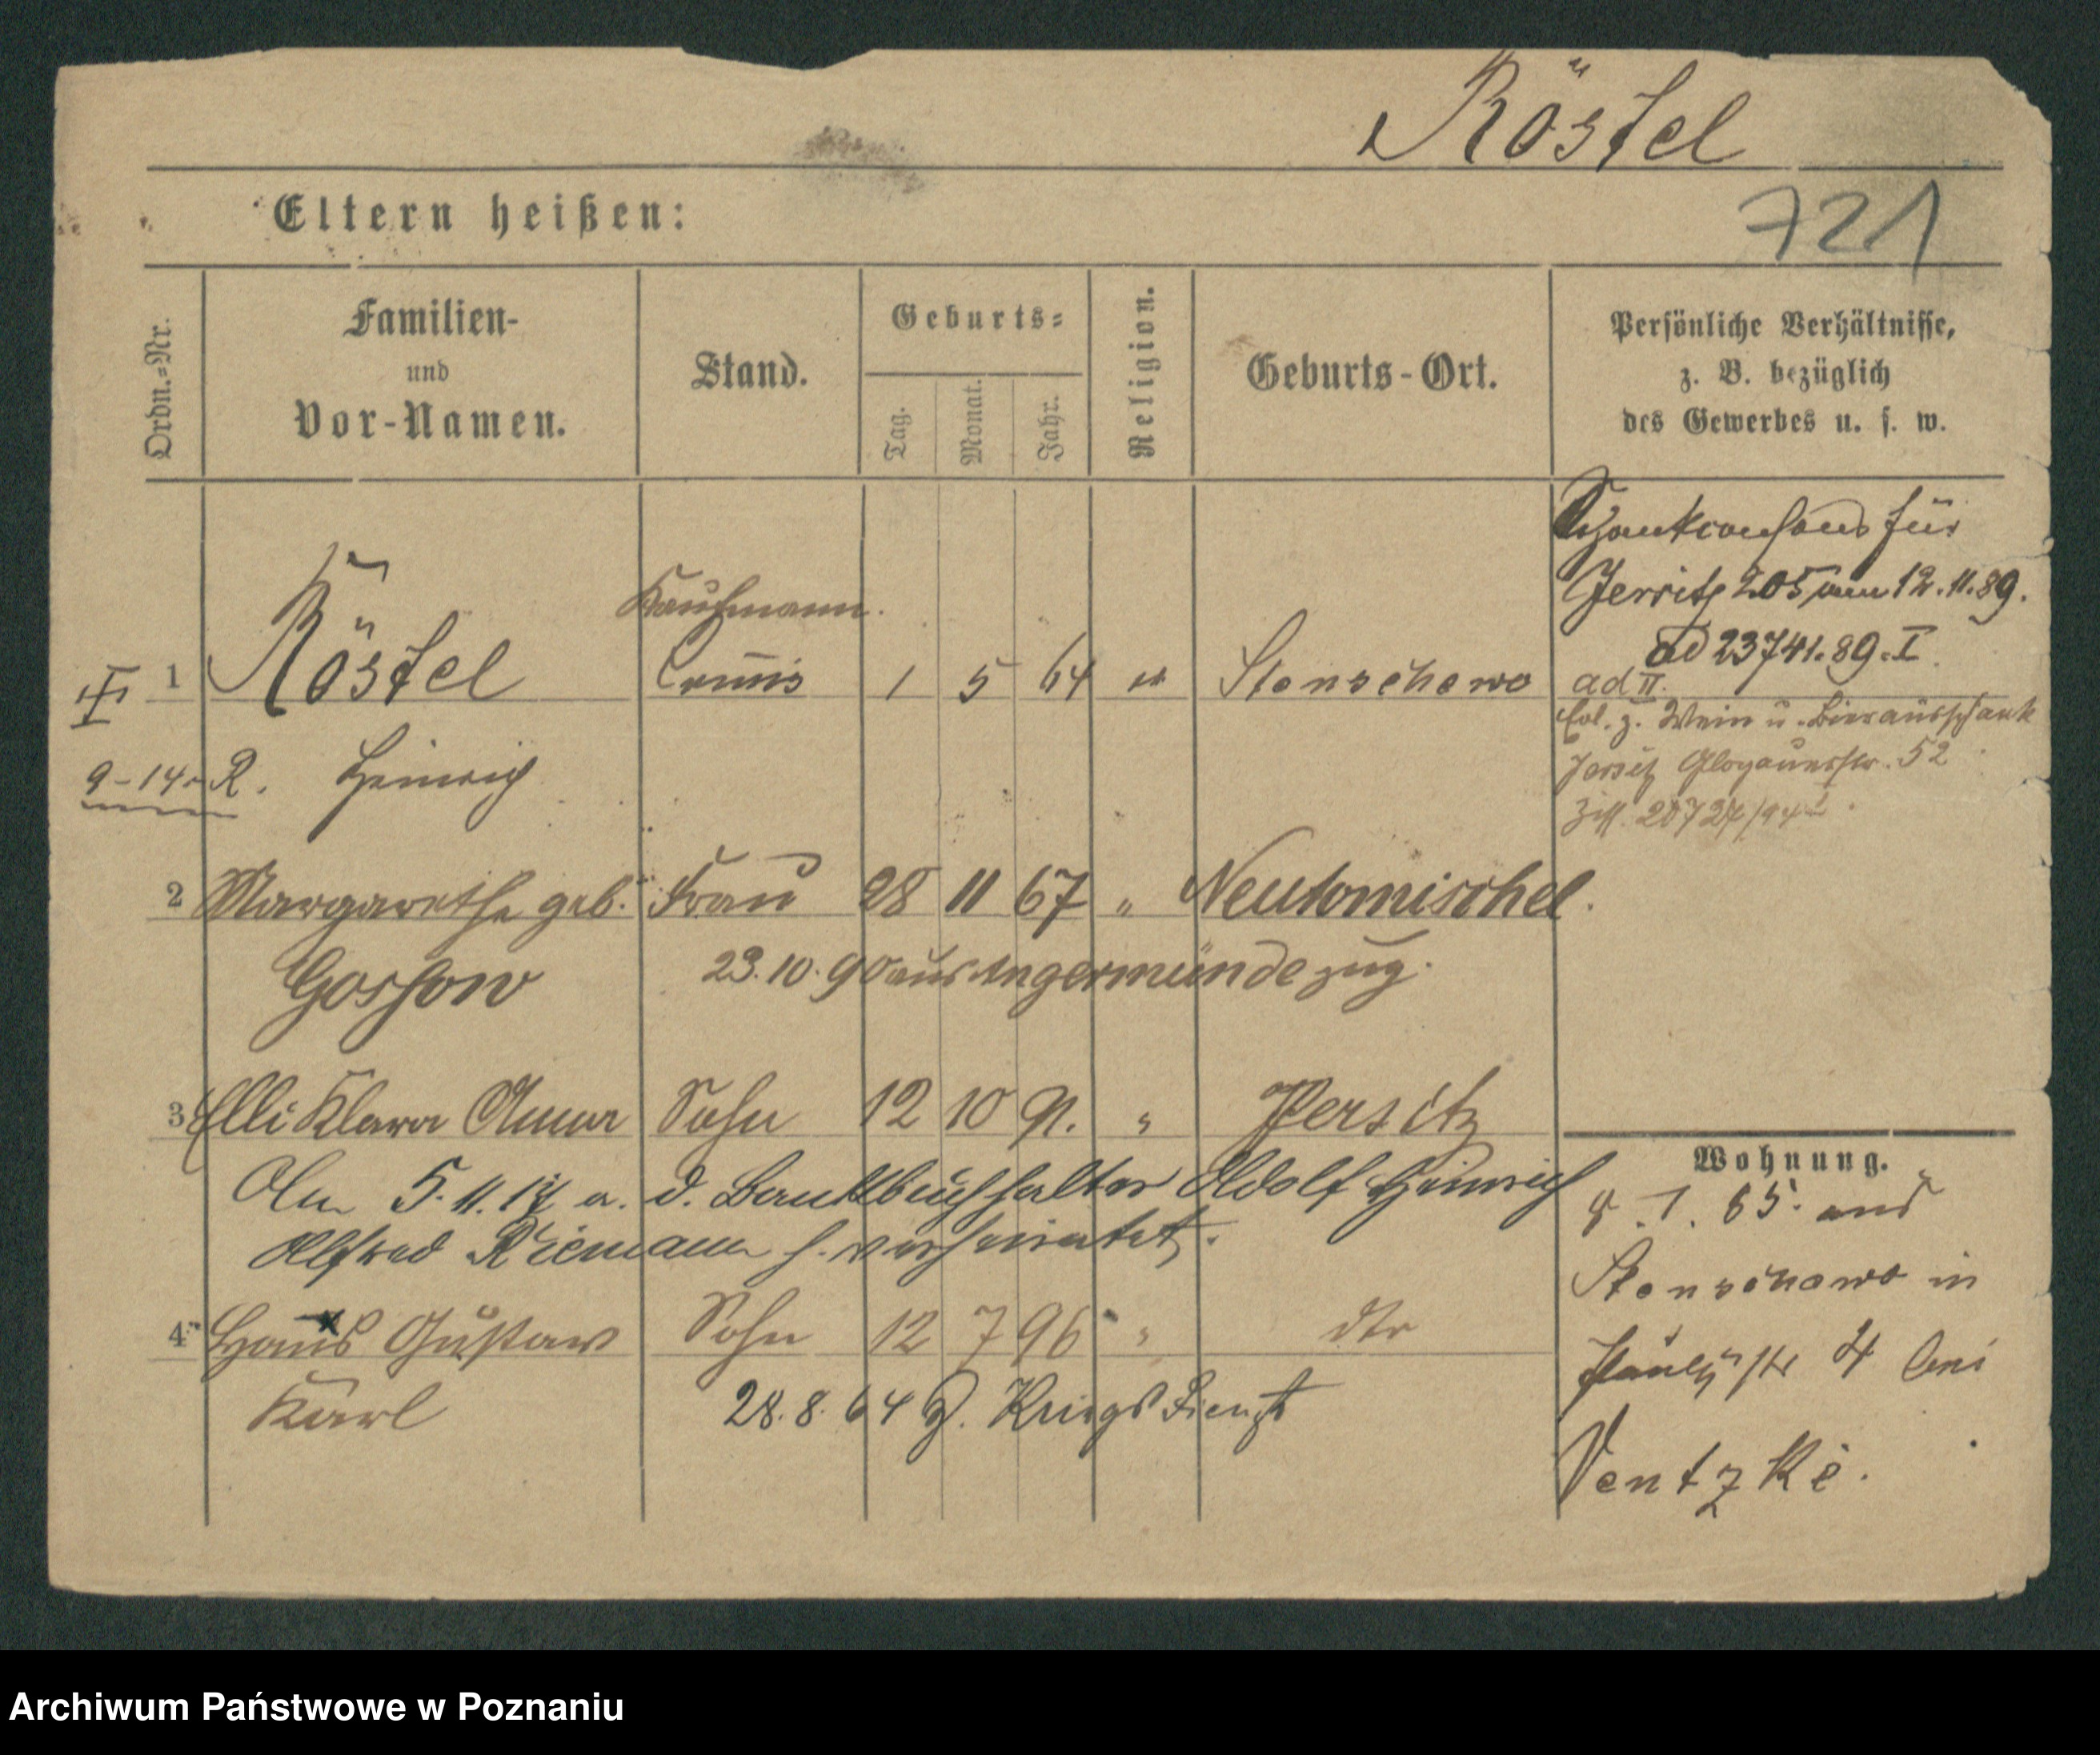 Röstel
721
Eltern heißen:
Ordn.-Nr.
Familien-
und
Vor-Namen.
Stand.
Geburts-
Tag.
Monat.
Jahr.
Religion.
Geburts-Ort.
Persönliche Verhältnisse,
z. B. bezüglich
des Gewerbes u. s. w.
für
205 12.11.89.
ad 23741.89.I.
ad II.
z. Wein u. Bierausschank
Jersitz Glogauerstr. 52
1 Röstel Kaufmann. Commis 1 5 64 Stenschewo
9-14. R. Heinrich
2 Margarethe geb. Frau 28 11 67 " Neutomischel.
Gossow 23.10.90 aus Angermünde zug.
3 Elli Klara Anna Sohn 12 10 91. " Jersitz
Am 5.11.17 a. d. Bankbuchhalter Adolf Heinrich
Alfred Riemann h. verheiratet.
4 Hans Gustav Sohn 12 7 96 " dto
Karl 28.8. Kriegsdienst
Wohnung.
1. 65. aus
Stenschewo in
4 bei
Ventzke.
Archiwum Państwowe w Poznaniu